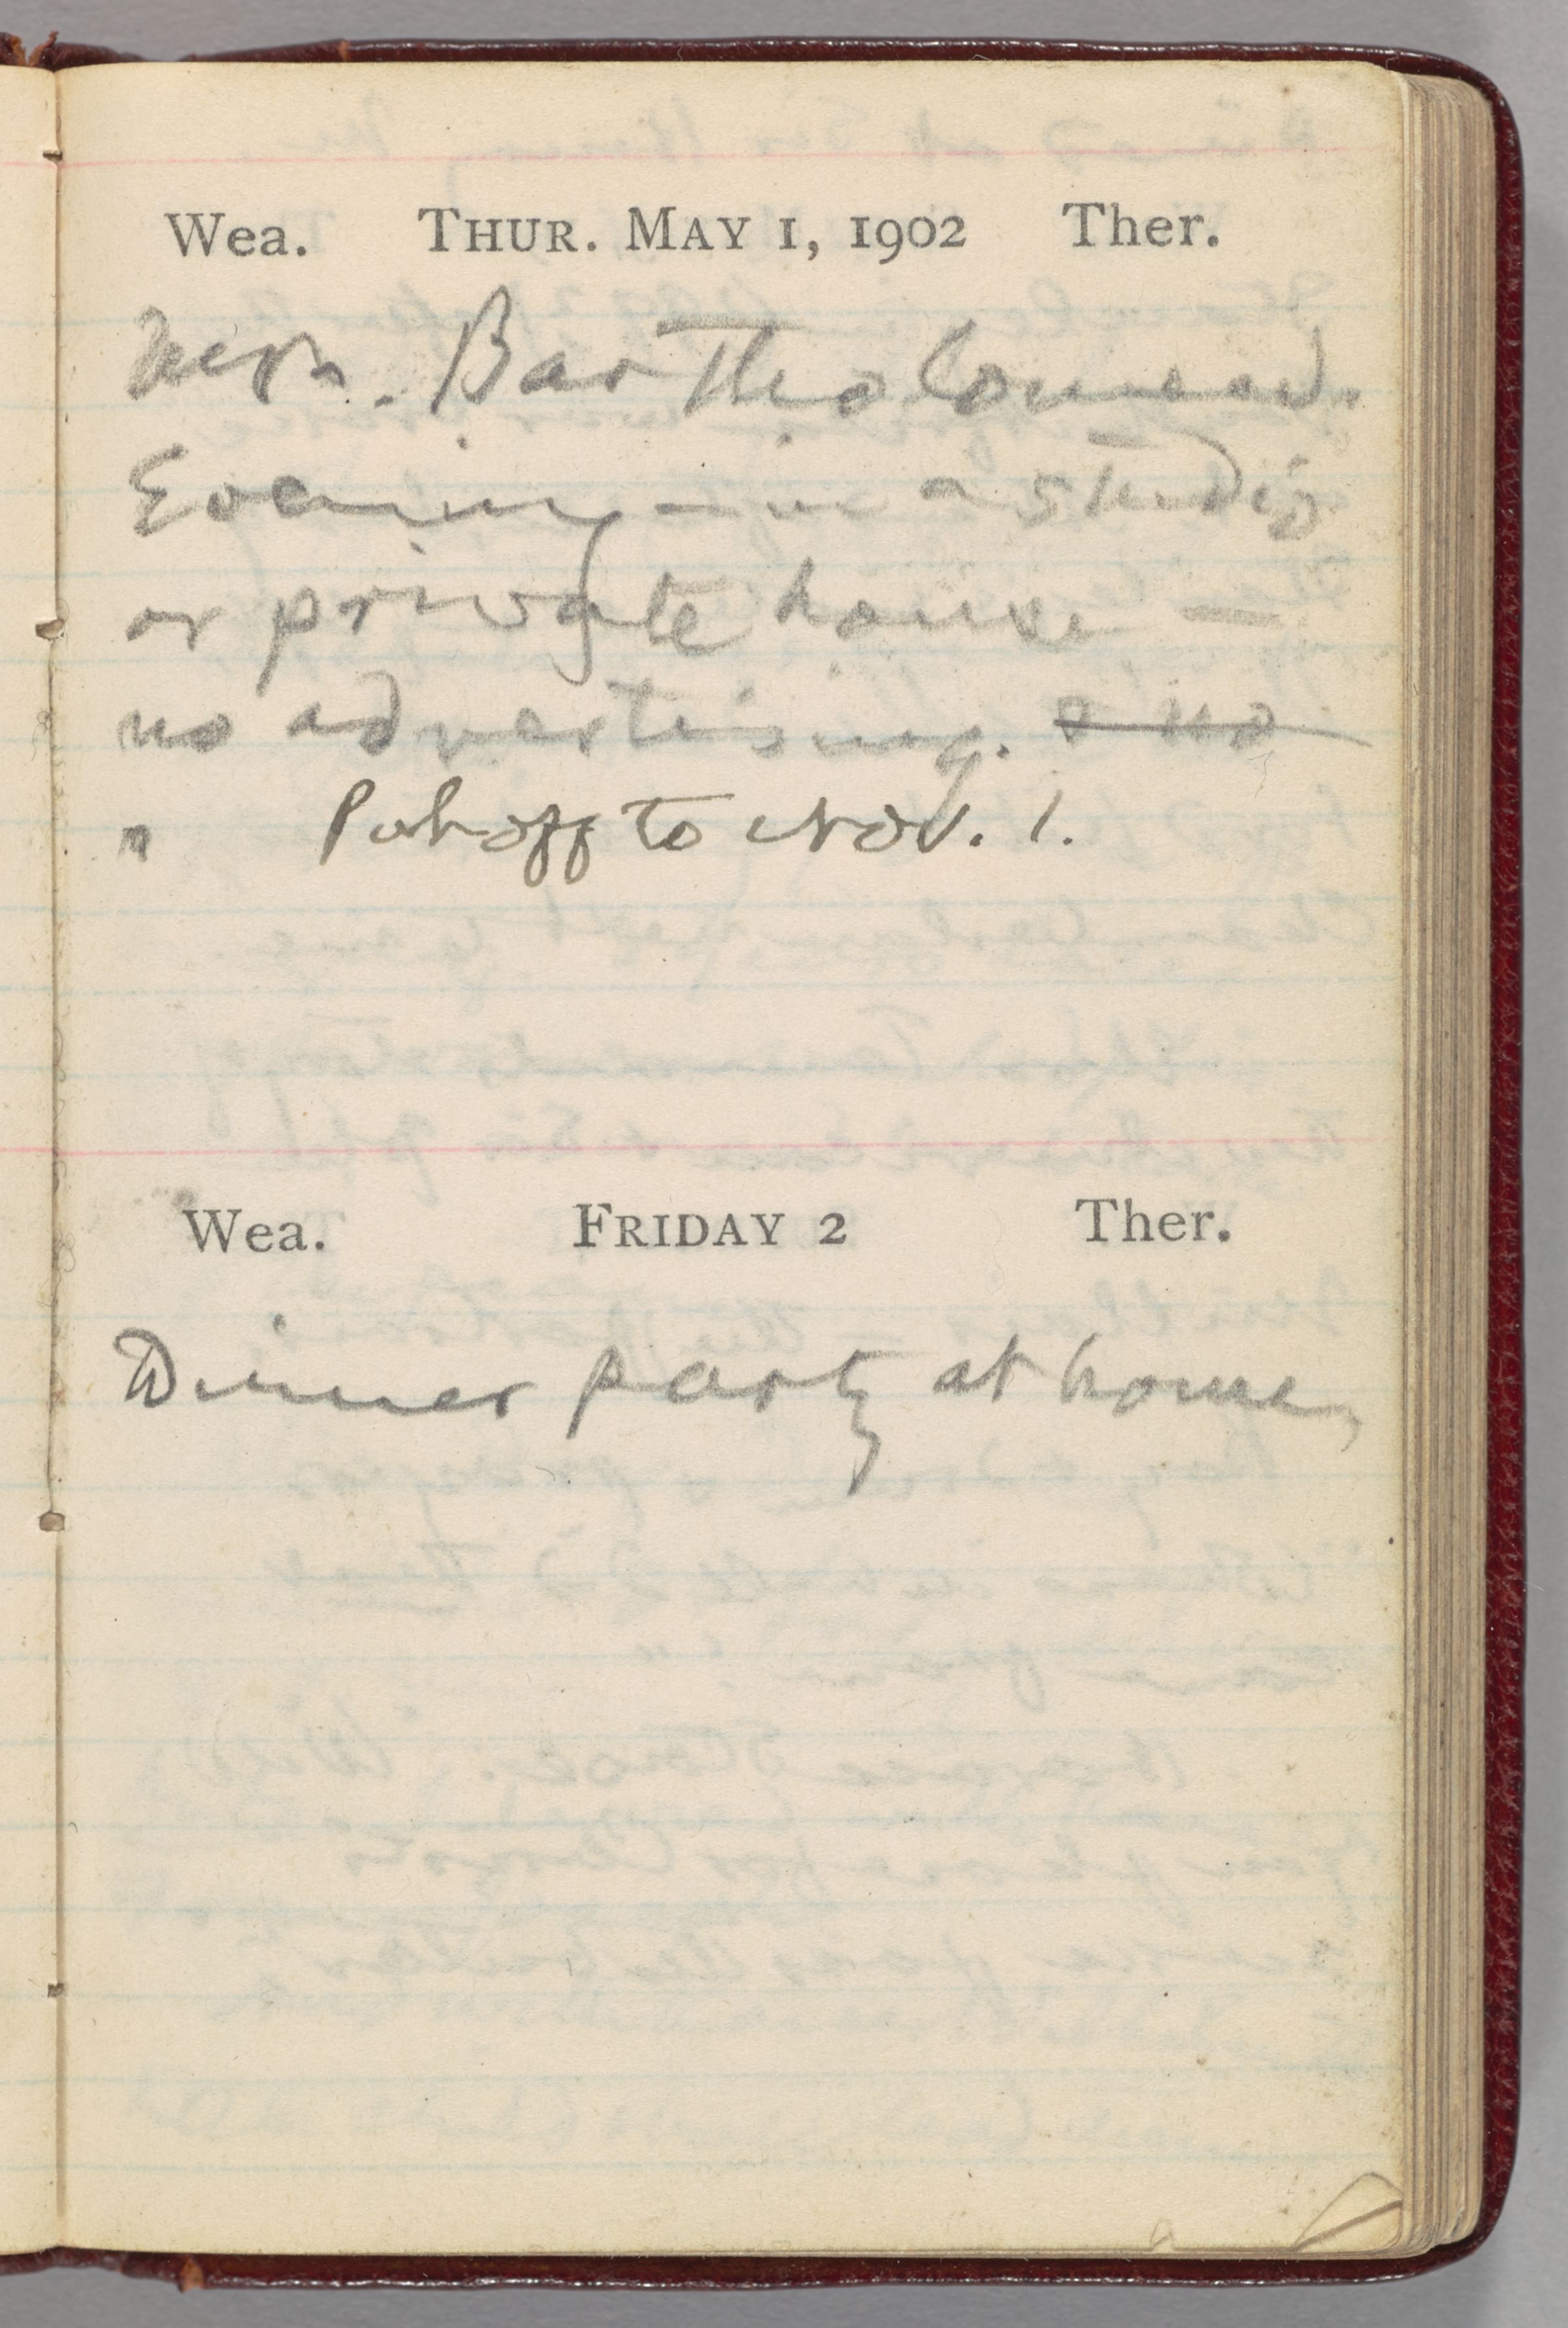 Wea. THUR. MAY 1, 1902 Ther.
Mrs. Bartholomew.
Evening – in a studio
or private house –
no advertising. & no
" Put off to Nov. 1.
Wea. FRIDAY 2 Ther.
Dinner party at home,